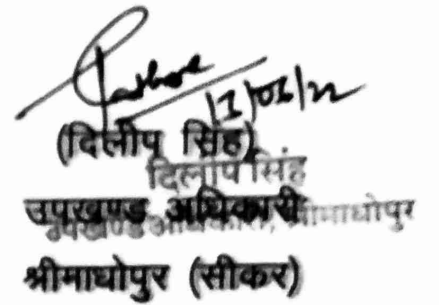 17/01/22
(दिलीप सिंह)
दिलीप सिंह
उपखण्ड अधिकारी
उपखण्ड अधिकारी, श्रीमाधोपुर
श्रीमाधोपुर (सीकर)